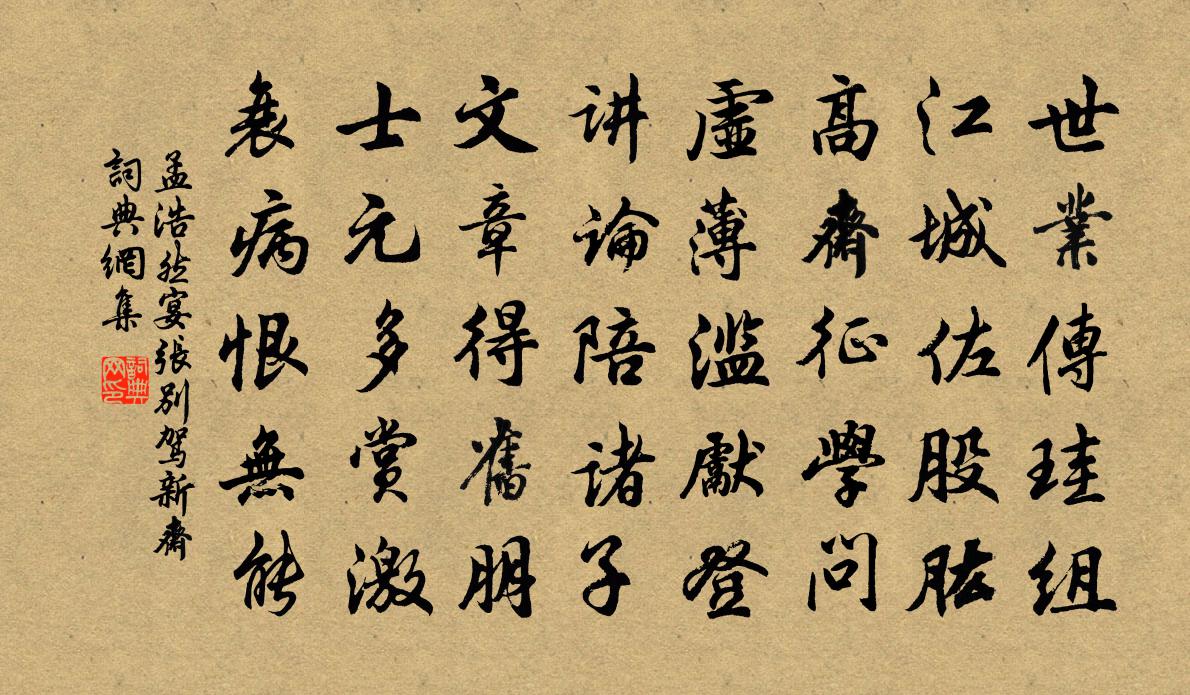 世業傳珪組
江城佐股肱
高齋征學問
虛薄滥獻登
讲論陪諸子
文章得舊朋
士元多賞激
衰病恨無能
孟浩然宴張別駕新齋
詞典網集
詞典网印